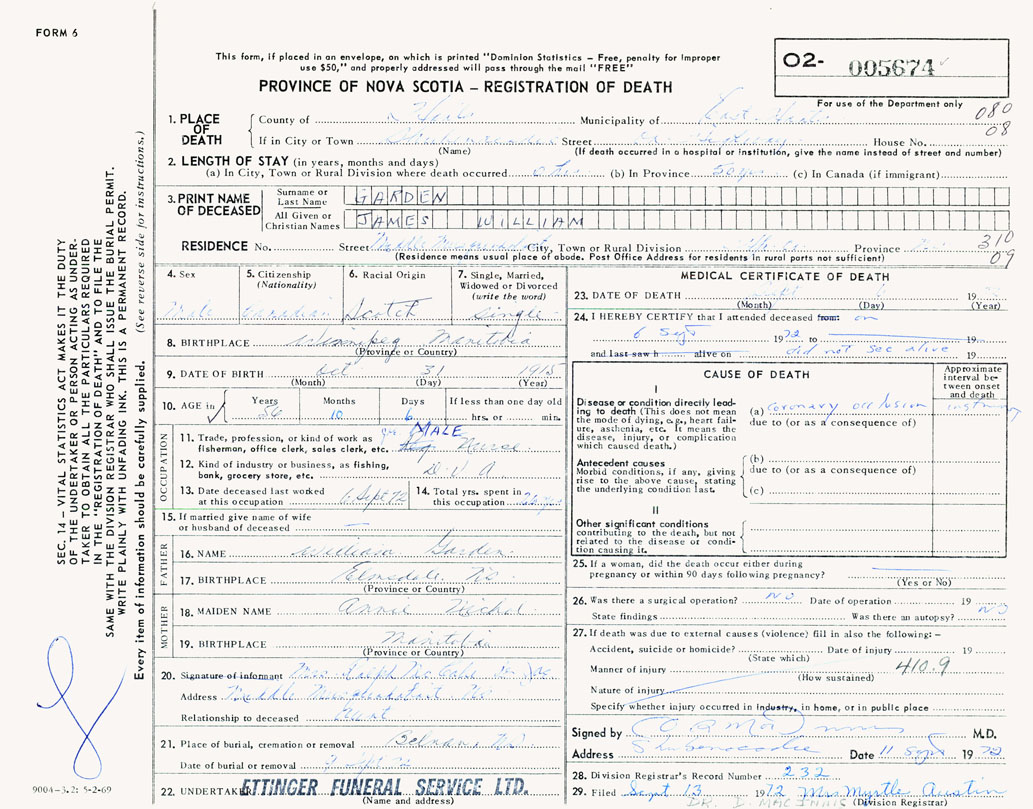 FORM 6
This form, if placed in an envelope, on which is printed "Dominion Statistics – Free, penalty for improper
use $50," and properly addressed will pass through the mail "FREE"
PROVINCE OF NOVA SCOTIA – REGISTRATION OF DEATH
O2- 005674
For use of the Department only
080
08
1. PLACE OF DEATH
County of Municipality of East Hants
If in City or Town Street Highway House No.
(Name) (If death occurred in a hospital or institution, give the name instead of street and number)
2. LENGTH OF STAY (in years, months and days)
(a) In City, Town or Rural Division where death occurred (b) In Province (c) In Canada (if immigrant)
3. PRINT NAME OF DECEASED
Surname or Last Name GARDEN
All Given or Christian Names JAMES WILLIAM
RESIDENCE No. Street City, Town or Rural Division Province
310
09
(Residence means usual place of abode. Post Office Address for residents in rural parts not sufficient)
4. Sex
Male
5. Citizenship (Nationality)
Canadian
6. Racial Origin
Scotch
7. Single, Married, Widowed or Divorced (write the word)
Single
8. BIRTHPLACE Winnipeg Manitoba
(Province or Country)
9. DATE OF BIRTH Oct 31 1915
(Month) (Day) (Year)
10. AGE in Years 56 Months 10 Days 6 If less than one day old hrs. or min.
OCCUPATION
11. Trade, profession, or kind of work as fisherman, office clerk, sales clerk, etc. MALE Nurse
12. Kind of industry or business, as fishing, bank, grocery store, etc. D V A
13. Date deceased last worked at this occupation 1 Sept 72
14. Total yrs. spent in this occupation 26 yrs
15. If married give name of wife or husband of deceased –
FATHER
16. NAME William Garden
17. BIRTHPLACE Elmsdale NS
(Province or Country)
MOTHER
18. MAIDEN NAME Annie Nichol
19. BIRTHPLACE Manitoba
(Province or Country)
20. Signature of informant Mrs Ralph
Address Middle Musquodoboit NS
Relationship to deceased Aunt
21. Place of burial, cremation or removal Belnan, NS
Date of burial or removal Sept 72
22. UNDERTAKER ETTINGER FUNERAL SERVICE LTD.
(Name and address)
MEDICAL CERTIFICATE OF DEATH
23. DATE OF DEATH Sept 6 19 72
(Month) (Day) (Year)
24. I HEREBY CERTIFY that I attended deceased from: on
6 Sept 1972 to 19
and last saw h alive on did not see alive 19
CAUSE OF DEATH
Approximate interval between onset and death
I
Disease or condition directly leading to death (This does not mean the mode of dying, e.g., heart failure, asthenia, etc. It means the disease, injury, or complication which caused death.)
(a) coronary occlusion
due to (or as a consequence of)
Antecedent causes
Morbid conditions, if any, giving rise to the above cause, stating the underlying condition last.
(b)
due to (or as a consequence of)
(c)
II
Other significant conditions contributing to the death, but not related to the disease or condition causing it.
25. If a woman, did the death occur either during pregnancy or within 90 days following pregnancy?
(Yes or No)
26. Was there a surgical operation? NO Date of operation 19
State findings Was there an autopsy? NO
27. If death was due to external causes (violence) fill in also the following: –
Accident, suicide or homicide? Date of injury 19
(State which)
Manner of injury 410.9
(How sustained)
Nature of injury
Specify whether injury occurred in industry, in home, or in public place
Signed by M.D.
Address Shubenacadie Date 11 Sept 1972
28. Division Registrar's Record Number 232
29. Filed Sept 13 1972 Mrs Myrtle Austin
DR. D. MACINNIS (Division Registrar)
SEC. 14 – VITAL STATISTICS ACT MAKES IT THE DUTY
OF THE UNDERTAKER OR PERSON ACTING AS UNDER-
TAKER TO OBTAIN ALL THE PARTICULARS REQUIRED
IN THE "REGISTRATION OF DEATH" AND TO FILE THE
SAME WITH THE DIVISION REGISTRAR WHO SHALL ISSUE THE BURIAL PERMIT.
WRITE PLAINLY WITH UNFADING INK. THIS IS A PERMANENT RECORD.
Every item of information should be carefully supplied. (See reverse side for instructions.)
9004-3.2: 5-2-69